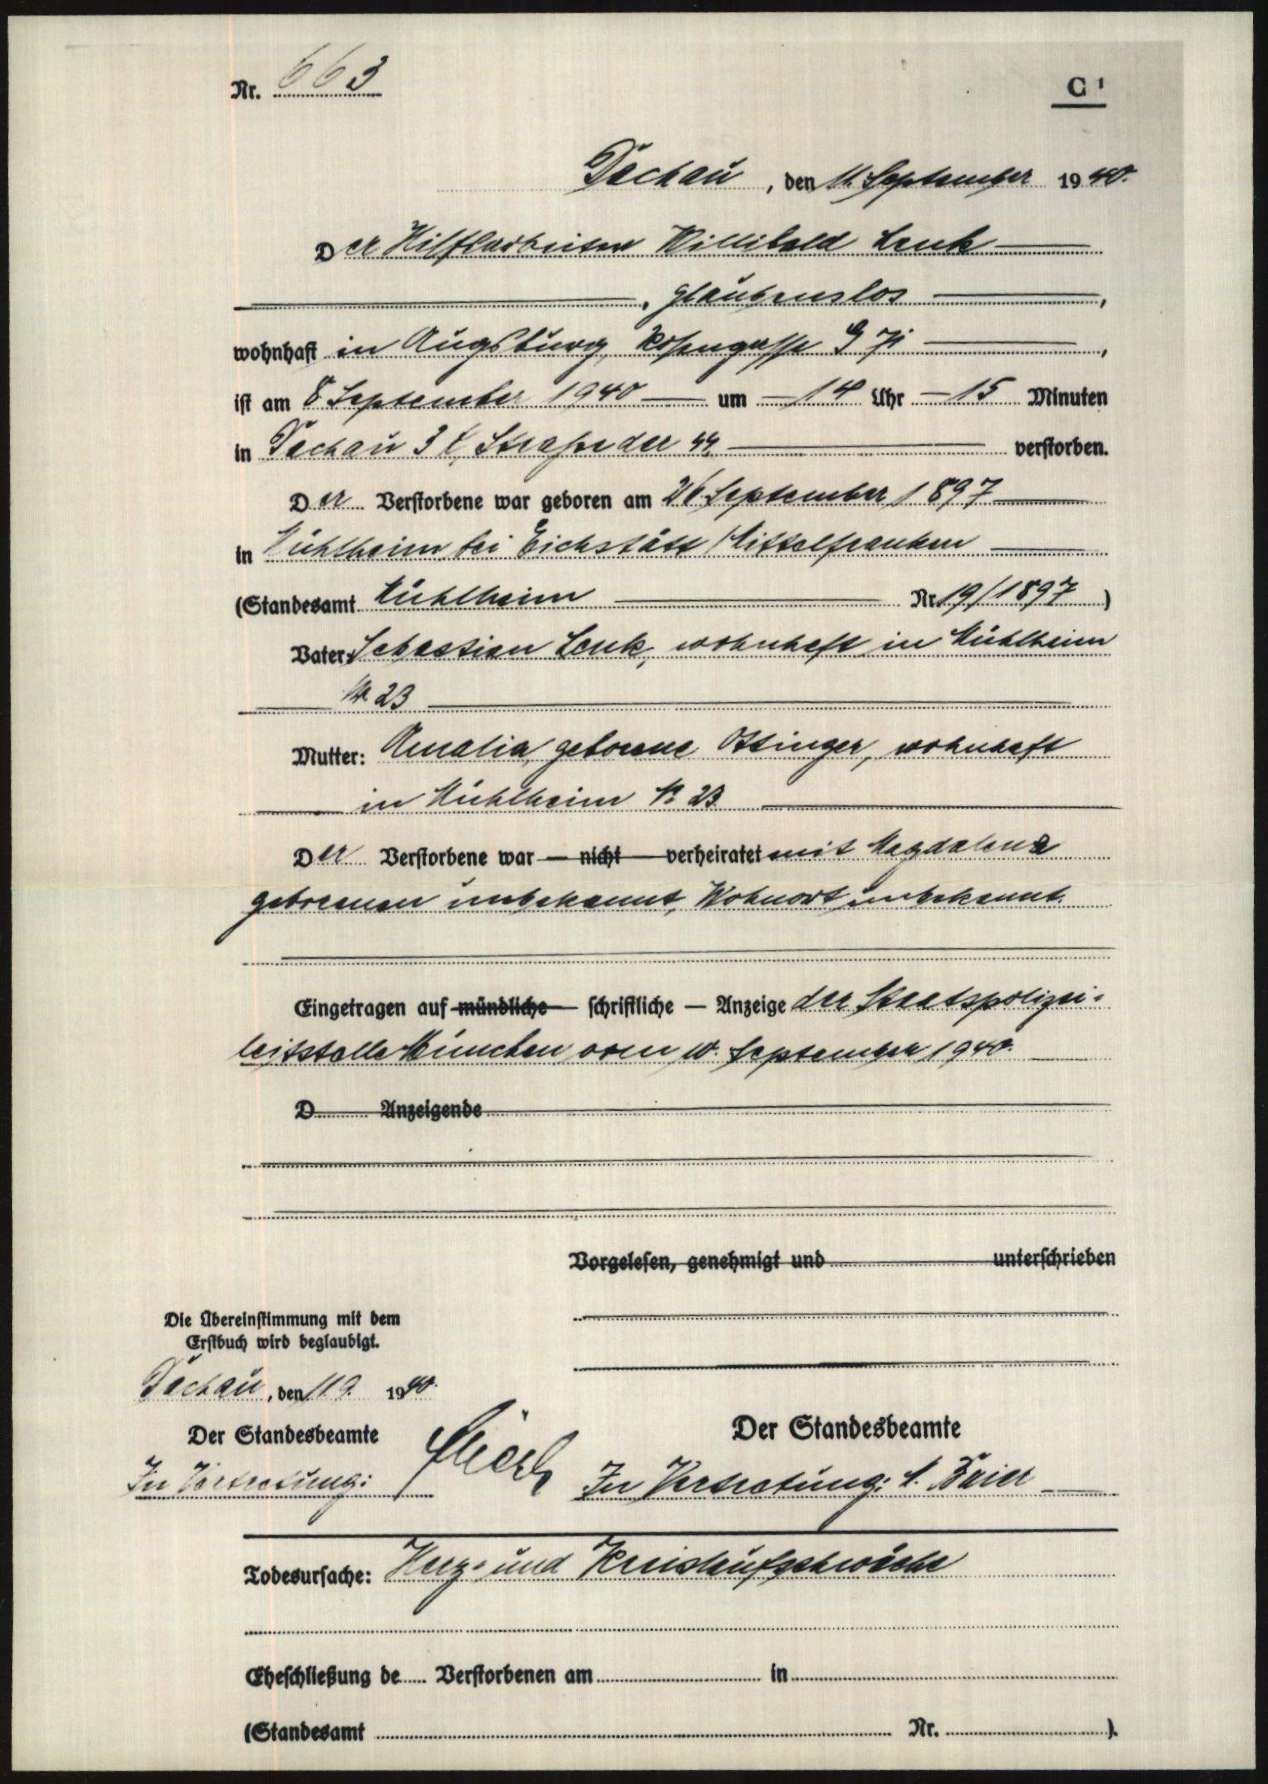 Nr. 663
C 1
Dachau, den 11. September 1940.
Der Hilfsarbeiter Willibald Lenk
, glaubenslos,
wohnhaft in Augsburg, Rosengasse,
ist am 8. September 1940 um 14 Uhr 15 Minuten
in Dachau 3 K, Straße der SS verstorben.
Der Verstorbene war geboren am 26. September 1897
in Mühlheim bei Eichstätt Mittelfranken
(Standesamt Mühlheim Nr. 19/1897)
Vater: Sebastian Lenk, wohnhaft in Mühlheim
Nr. 23
Mutter: Amalia, geborene Ottinger, wohnhaft
in Mühlheim Nr. 23
Der Verstorbene war — nicht — verheiratet mit Magdalena
geborenen unbekannt, Wohnort unbekannt.
Eingetragen auf mündliche — schriftliche — Anzeige der Staatspolizei-
leitstelle München vom 10. September 1940.
D Anzeigende
Vorgelesen, genehmigt und unterschrieben
Die Übereinstimmung mit dem
Erstbuch wird beglaubigt.
Dachau, den 11.9. 1940.
Der Standesbeamte
In Vertretung:
Der Standesbeamte
In Vertretung:
Todesursache: Herz- und Kreislaufschwäche
Eheschließung de Verstorbenen am in
(Standesamt Nr. ).